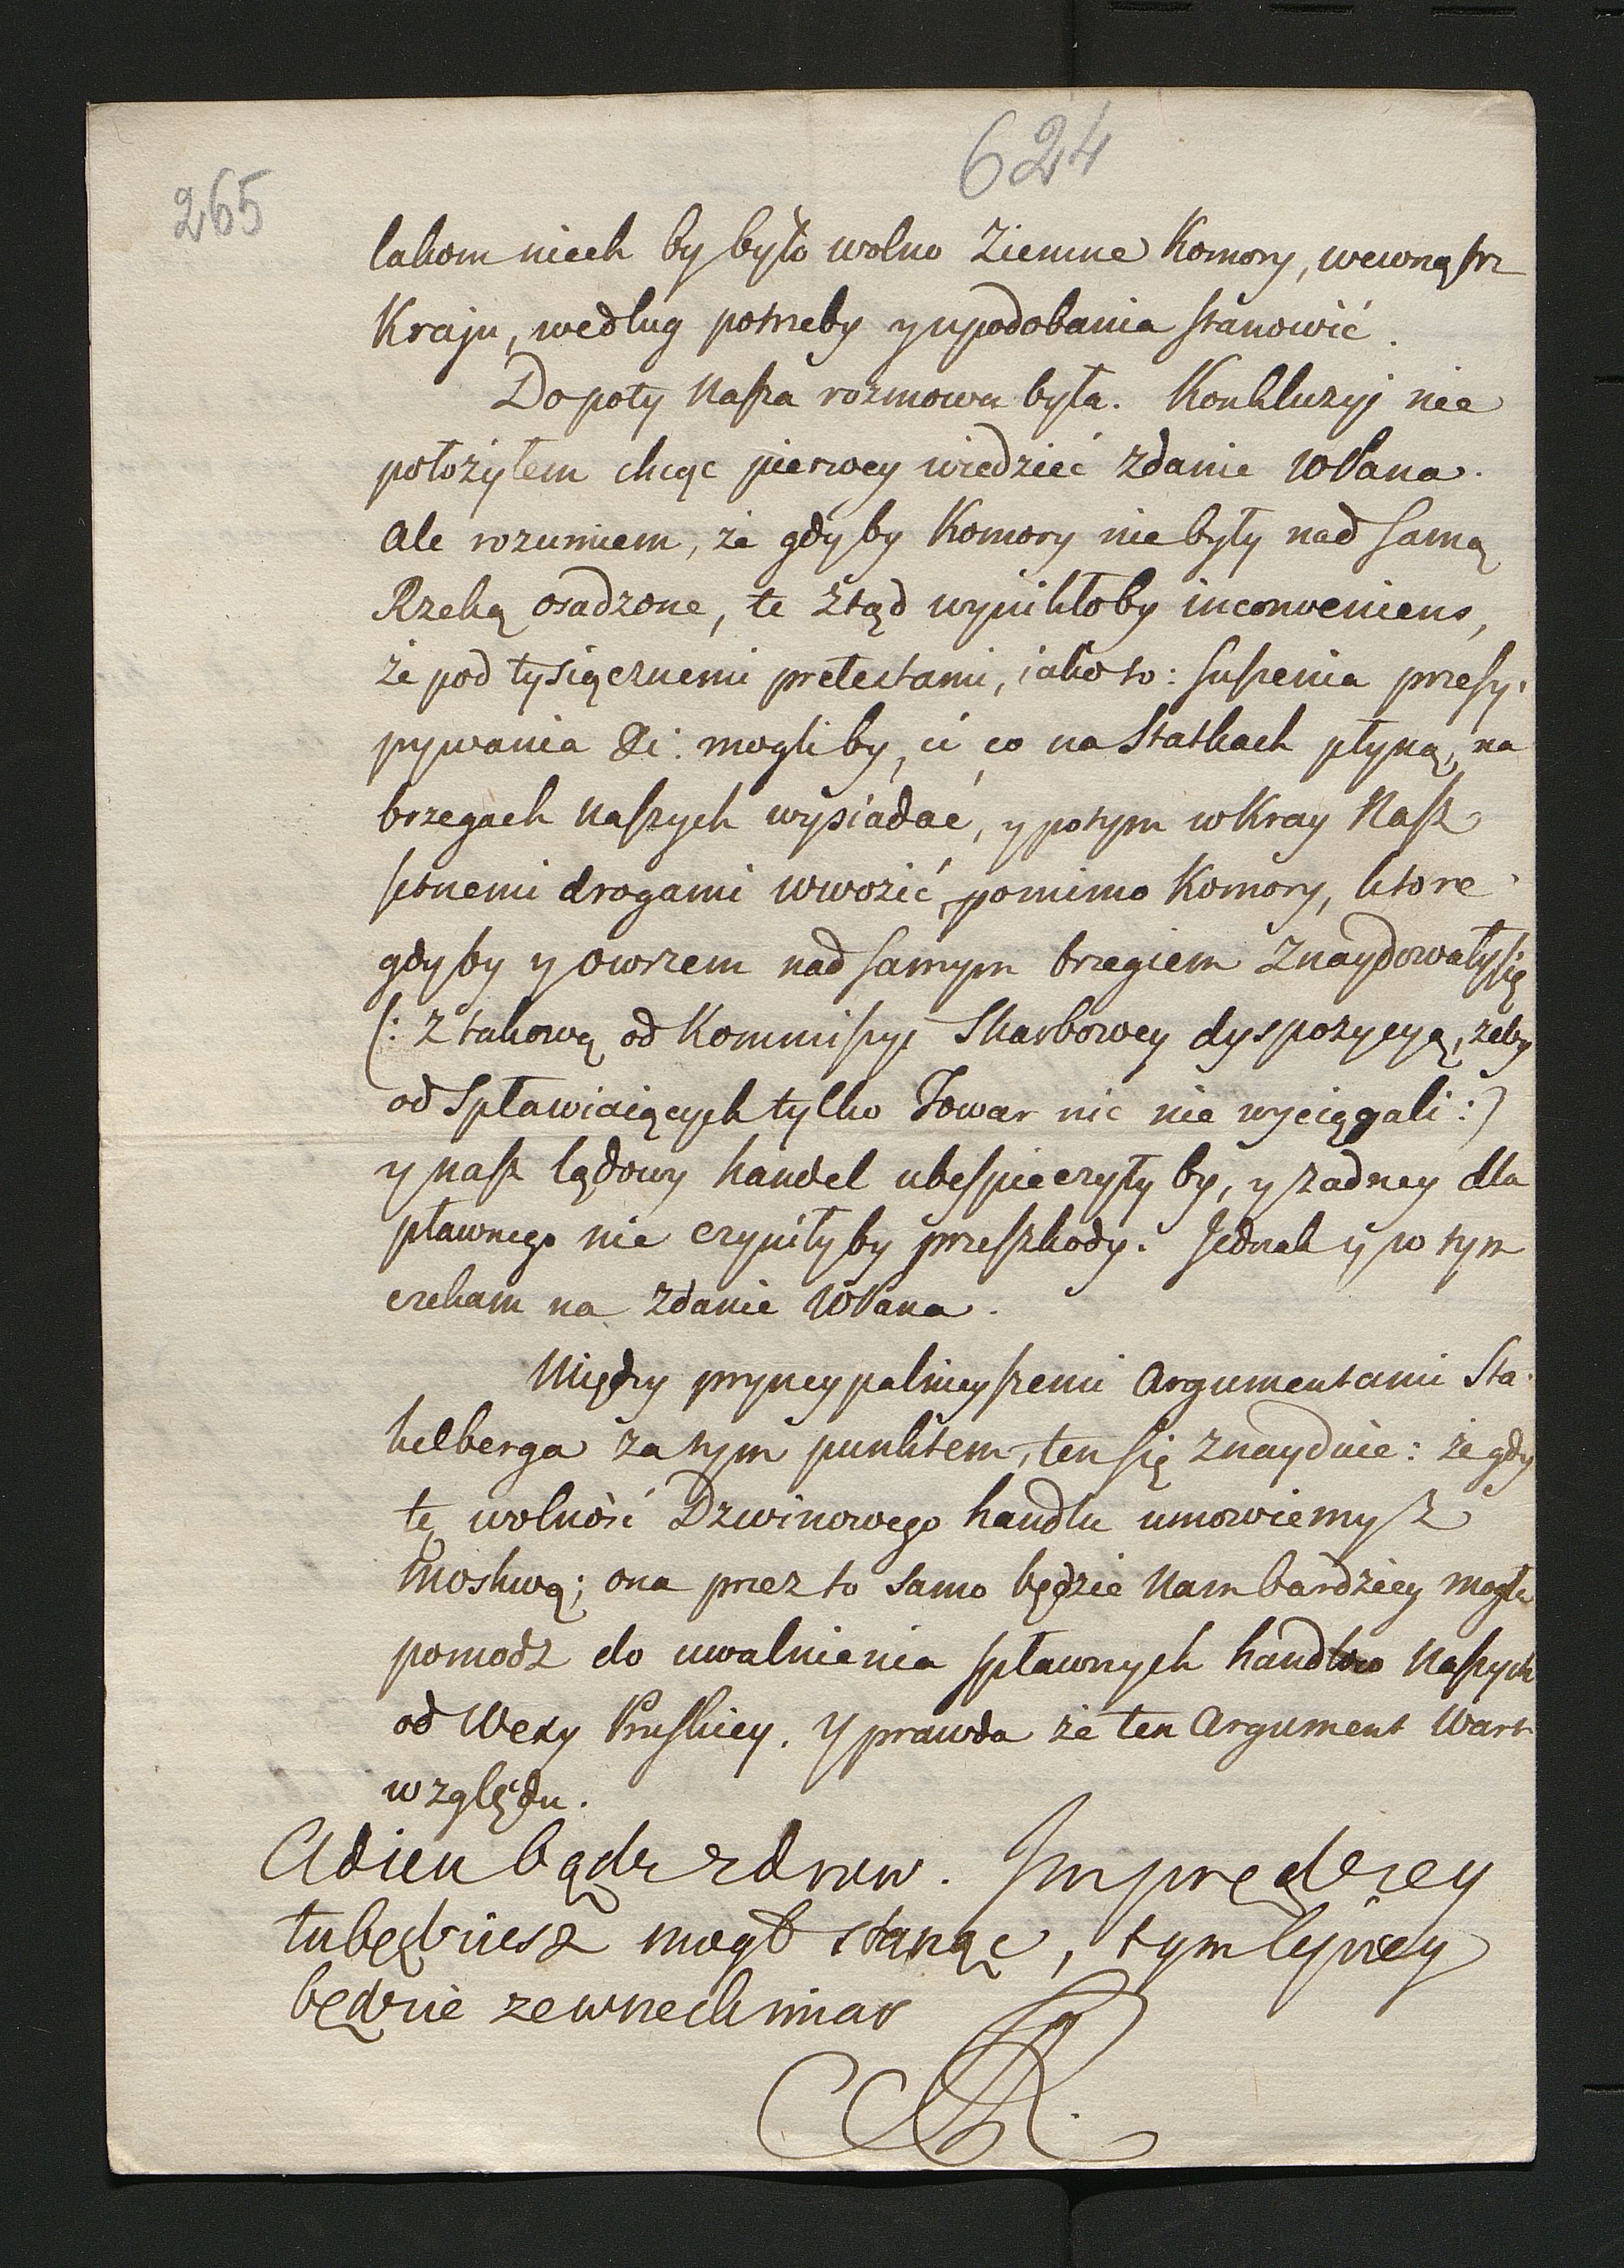 624
265
lakom niech by było wolno Ziemne Komory, wewnątrz
Kraju, według potrzeby y upodobania stanowić.
Dopoty Nasza rozmowa była. Konkluzyi nie
położyłem chcąc pierwey wiedzieć zdanie WPana.
Ale rozumiem, że gdyby Komory nie były nad samą
Rzeką osadzone, te ztąd wynikłoby inconveniens,
że pod tysiącznemi pretextami, iako to: suszenia przesy-
pywania &c. mogliby, ci co na Statkach płyną, na
brzegach Naszych wysiadać, y potym w Kray Nasz
stronemi drogami wwozić, pomimo Komory, ktore
gdyby y owszem nad samym brzegiem Znaydowały się
(: Z takową od Kommissyi Skarbowey dyspozycyą, żeby
od Spławiaiących tylko Towar nic nie wyciągali :)
y nasz lądowy handel ubespieczyły by, y zadney dla
pławnego nie czyniły by przeszkody. Jednak y w tym
czekam na zdanie WPana.
Między pryncypalnieyszemi Argumentami Sta-
kelberga za tym punktem, ten się znayduie: że gdy
tę wolność Dzwinowego handlu umowiemy Z
Moskwą; ona przez to samo będzie Nam bardziey mogła
pomodz do uwalnienia spławnych handlow Naszych
od Wexy Pruskiey. Y prawda że ten Argument Wart
względu.
Adieu bądz zdrow. Im prędzey
tu będziesz mogł stanąć, tym lepiey
będzie ze wszech miar
SAR.